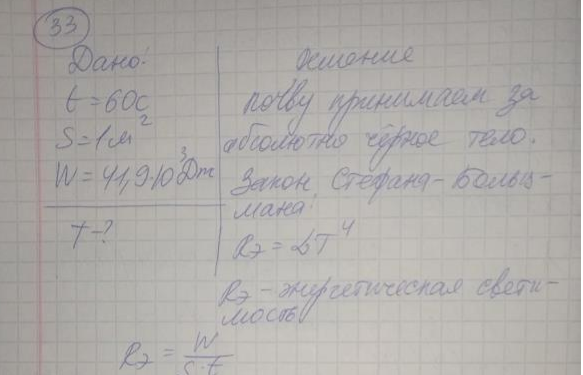 33
Дано:
t = 60с
S = 1м²
W = 41,9·10³Дж
T-?
Решение
почву принимаем за
абсолютно чёрное тело.
Закон Стефана-Больц-
мана:
Rэ = σT⁴
Rэ - энергетическая свети-
мость
Rэ = W/S·t